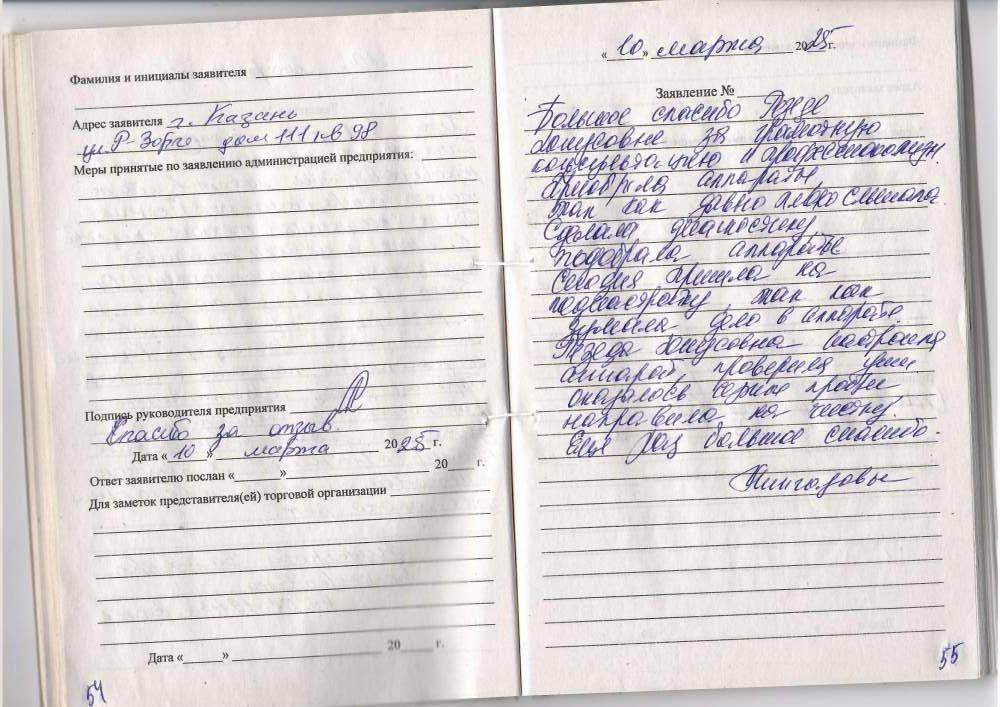 Фамилия и инициалы заявителя
Адрес заявителя г. Казань
ул Р-Зорге дом 111 кв 98
Меры принятые по заявлению администрацией предприятия:
Подпись руководителя предприятия
Спасибо за отзыв.
Дата «10» марта 2025 г.
Ответ заявителю послан «» 20 г.
Для заметок представителя(ей) торговой организации
Дата «» 20 г.
54
«10» марта 2025 г.
Заявление №
Большое спасибо Резеде
Юнусовне за грамотную
консультацию и
аппараты,
так как давно плохо слышала.
Сделала диагностику,
подобрала аппараты
Сегодня пришла на
поднастройку, так как
думала дело в аппарате.
Резеда Юнусовна настроила
аппарат, проверила уши
оказалось серные пробки
направила на чистку.
Еще раз большое спасибо.
55